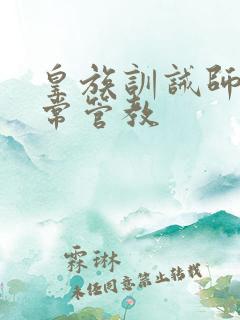 皇族訓誡師
常管教
霖琳
未经同意禁止转载